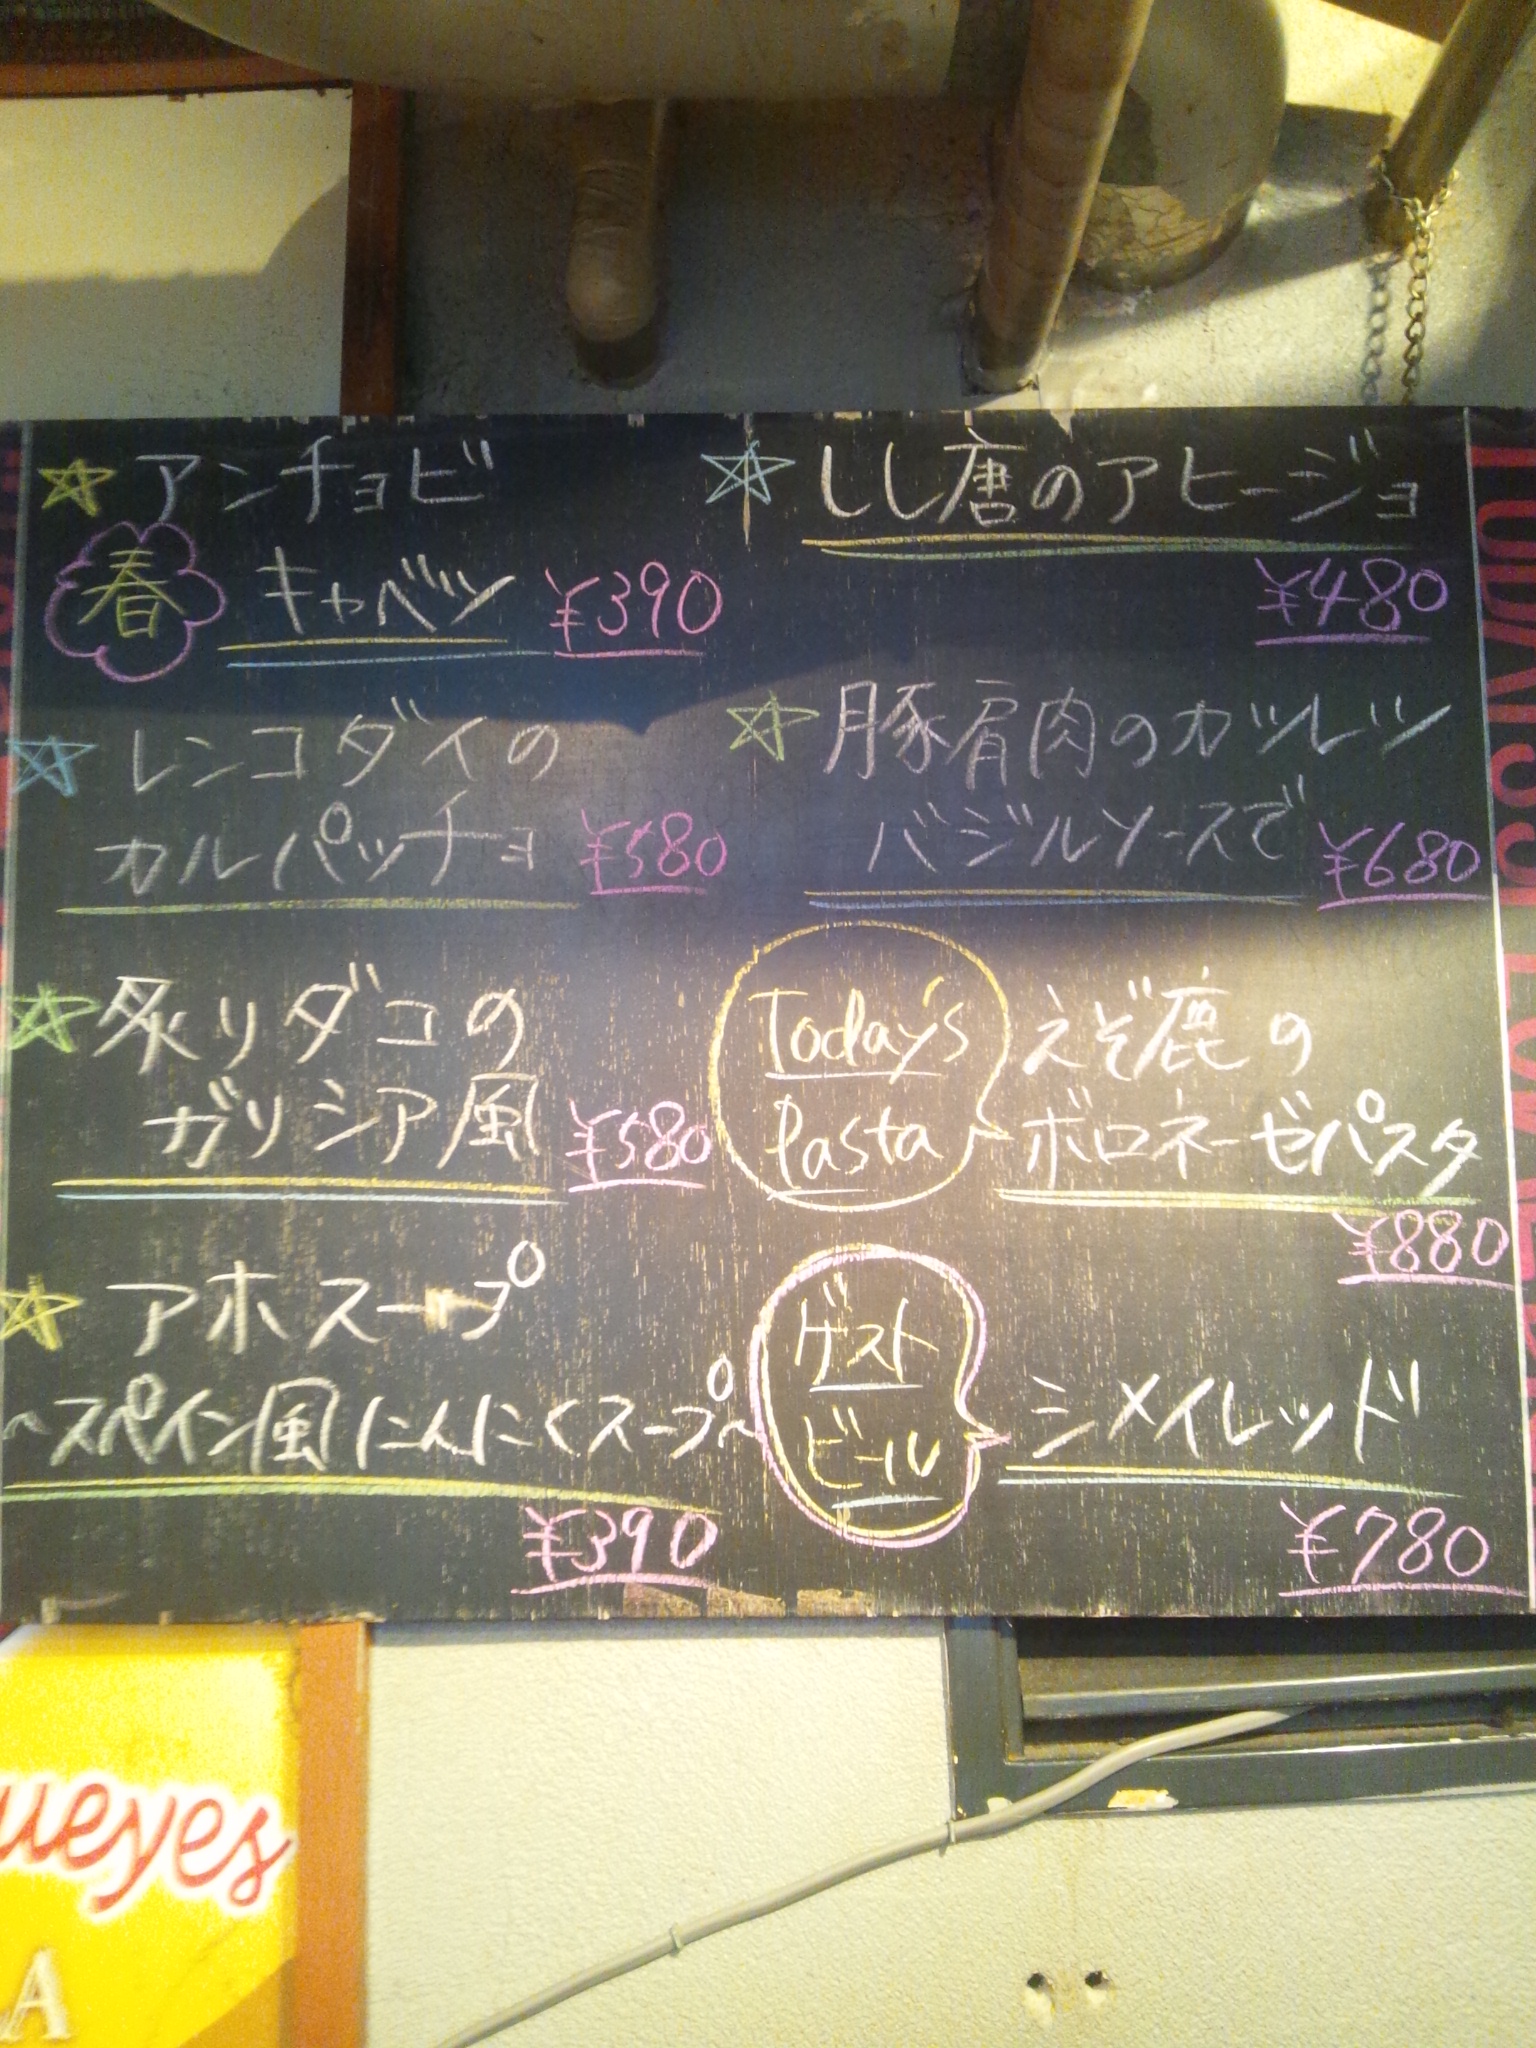 アンチョビ
春キャベツ ¥390
レンコダイの
カルパッチョ ¥580
炙りダコの
ガリシア風 ¥580
アホスープ
~スペイン風にんにくスープ~
¥390
しし唐のアヒージョ
¥480
豚肩肉のカツレツ
バジルソースで ¥680
Today's
Pasta
えぞ鹿の
ボロネーゼパスタ
¥880
ゲスト
ビール
シメイレッド
¥780
ueyes
A